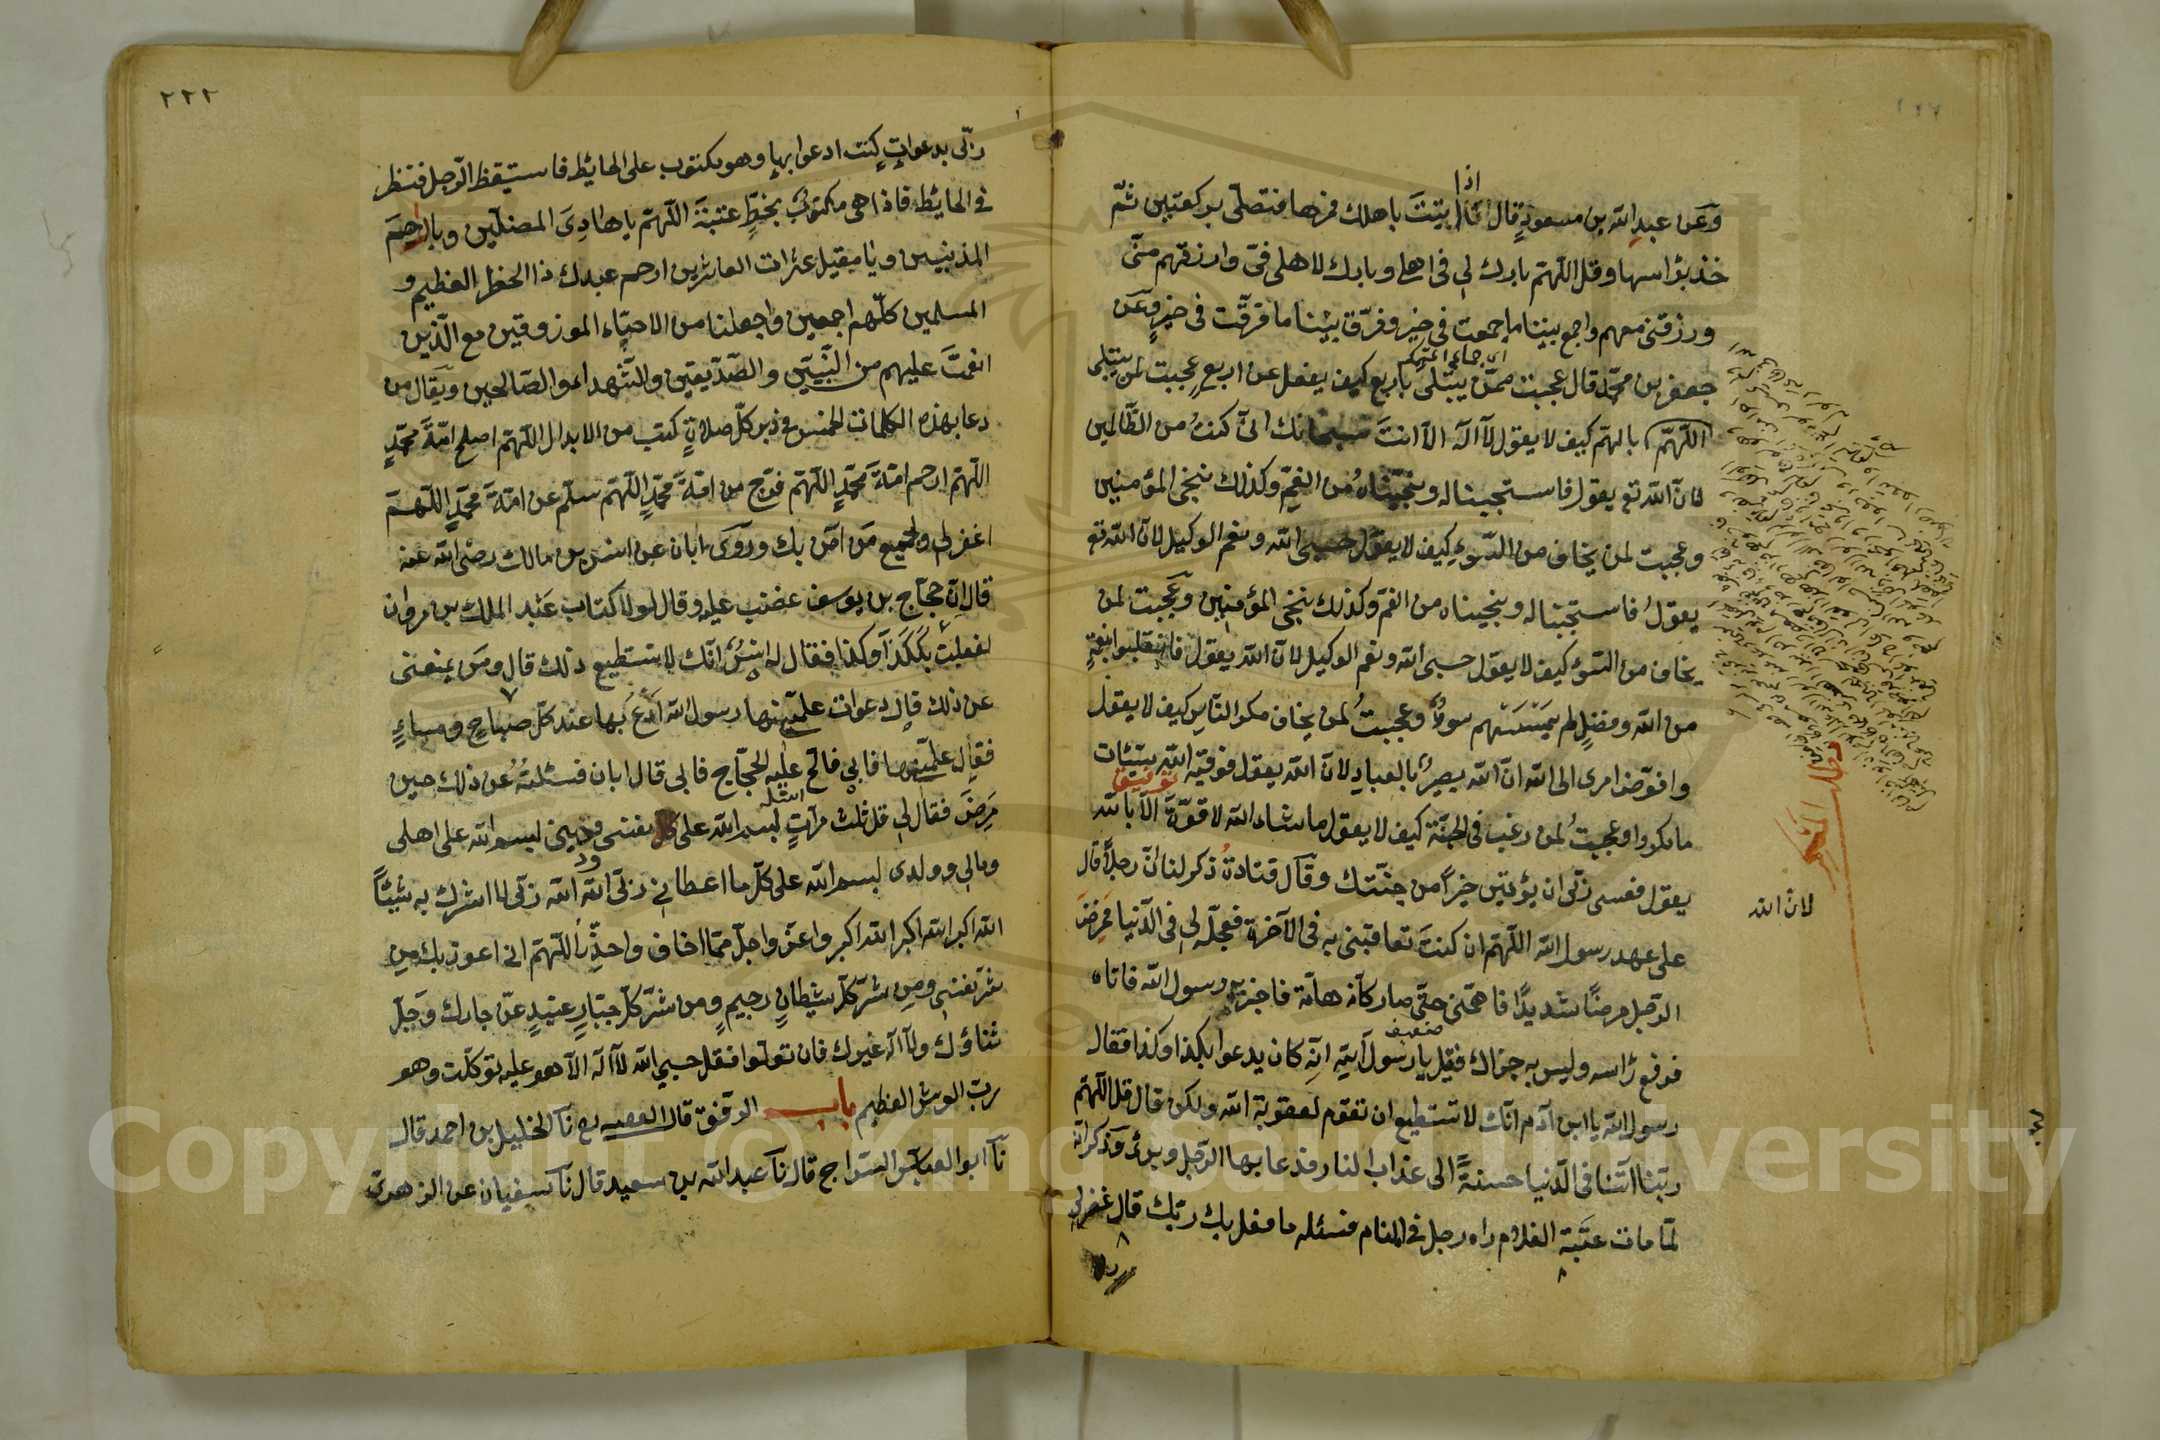 وعن عبد الله بن مسعود قال اذا بنيت باهلك فمرها فتصلى بركعتين ثم
خذ براسها وقل اللهم بارك لي في اهلي وبارك لاهلي في وارزقهم منى
ورزقنى منهم واجمع بيننا ما جمعت في خير وفرق بيننا ما فرقت في خير وعن
جعفر بن محمد قال عجبت ممن يبتلى باربع كيف يغفل عن اربع عجبت لمن يبتلى
بالهم كيف لا يقول لا اله الا انت سبحانك انى كنت من الظالمين
لان الله تع يقول فاستجبنا له ونجيناه من الغم وكذلك ننجى المؤمنين
وعجبت لمن يخاف من السوء كيف لا يقول حسبى الله ونعم الوكيل لان الله تع
يقول فاستجبنا له ونجيناه من الغم وكذلك ننجى المؤمنين وعجبت لمن
يخاف من السوء كيف لا يقول حسبى الله ونعم الوكيل لان الله يقول فانقلبوا بنعمة
من الله وفضل لم يمسسهم سوء وعجبت لمن يخاف مكر الناس كيف لا يقول
وافوض امرى الى الله ان الله بصير بالعباد لان الله يقول فوقيه الله سيئات
ما مكروا وعجبت لمن رغب في الجنة كيف لا يقول ما شاء الله لا قوة الا بالله
لان الله
يقول فعسى ربى ان يؤتين خيرا من جنتك وقال قتادة ذكر لنا ان رجلا قال
على عهد رسول الله اللهم ان كنت تعاقبنى به في الآخرة فعجله لي في الدنيا فمرض
الرجل مرضا شديدا حتى صار كانه هامة فاخبر به رسول الله فاتاه
فرفع راسه وليس به حراك فقيل يا رسول الله انه كان يدعوا بكذا وكذا فقال
رسول الله يا ابن آدم انك لا تستطيع ان تقوم لعقوبة الله ولكن قال قل اللهم
ربنا اتنا في الدنيا حسنة الى عذاب النار فدعا بها الرجل وبرئ وذكر انه
لما مات عتبة الغلام راه رجل في المنام فسئله ما فعل بك ربك قال غفر لي
٢٢٢
ربى بدعوات كنت ادعوا بها وهو مكتوب على الحائط فاستيقظ الرجل فنظر
في الحائط فاذا هي مكتوب بخط عتبة اللهم يا هادى المضلين ويا راحم
المذنبين ويا مقيل عثرات العاثرين ارحم عبدك ذا الخطر العظيم و
المسلمين كلهم اجمعين واجعلنا من الاحياء المرزوقين مع الذين
انعمت عليهم من النبيين والصديقين والشهداء والصالحين ويقال من
دعا بهذه الكلمات الخمس في دبر كل صلاة كتب من الابدال اللهم اصلح امة محمد
اللهم ارحم امة محمد اللهم فرج من امة محمد اللهم سلم عن امة محمد اللهم
اغفر لي ولجميع من آمن بك وروى ابان عن انس بن مالك رضى الله عنه
قال ان حجاج بن يوسف غضب عليه وقال لولا كتاب عبد الملك بن مروان
لفعلت بك كذا وكذا فقال له انس انك لا تستطيع ذلك قال ومن يمنعنى
عن ذلك قال دعوات علمنيها رسول الله ادع بها عند كل صباح ومساء
فقال علمنيها فابى فالح عليه الحجاج فابى قال ابان فسئلته عن ذلك حين
مرض فقال لي قل ثلث مرات بسم الله على نفسى ودينى بسم الله على اهلى
ومالي وولدى بسم الله على كل ما اعطاني ربى الله الله ربى لا اشرك به شيئا
الله اكبر الله اكبر الله اكبر واعز واجل مما اخاف واحذر اللهم اني اعوذ بك من
شر نفسى ومن شر كل شيطان رجيم ومن شر كل جبار عنيد عز جارك وجل
ثناؤك ولا اله غيرك فان تولوا فقل حسبي الله لا اله الا هو عليه توكلت وهو
رب العرش العظيم باب الرفق قال الفقيه نا الخليل بن احمد قال
نا ابو العباس السراج قال نا عبد الله بن سعيد قال نا سفيان عن الزهرى
Copyright © King Saud University